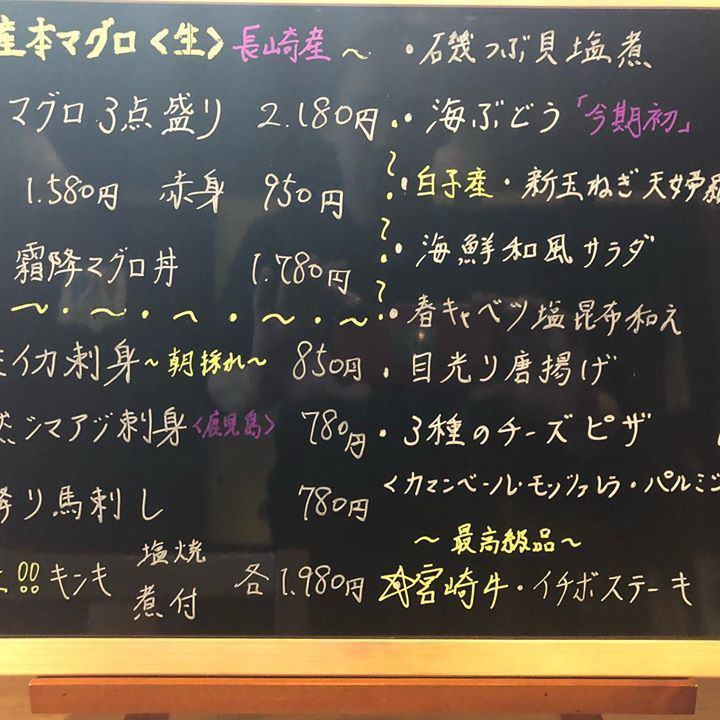 産本マグロ〈生〉長崎産～
マグロ3点盛り 2.180円
1.580円 赤身 950円
霜降マグロ丼 1.780円
～・～・へ・～・～
イカ刺身～朝採れ～ 850円
然シマアジ刺身〈鹿児島〉 780円
降り馬刺し 780円
!! キンキ 塩焼 煮付 各1.980円
・石磯つぶ貝塩煮
・海ぶどう「今期初」
・白子産・新玉ねぎ天婦羅
・海鮮和風サラダ
・春キャベツ塩昆布和え
・目光り唐揚げ
・3種のチーズピザ
〈カマンベール・モッツァレラ・パルミジ
～最高級品～
☆宮崎牛・イチボステーキ